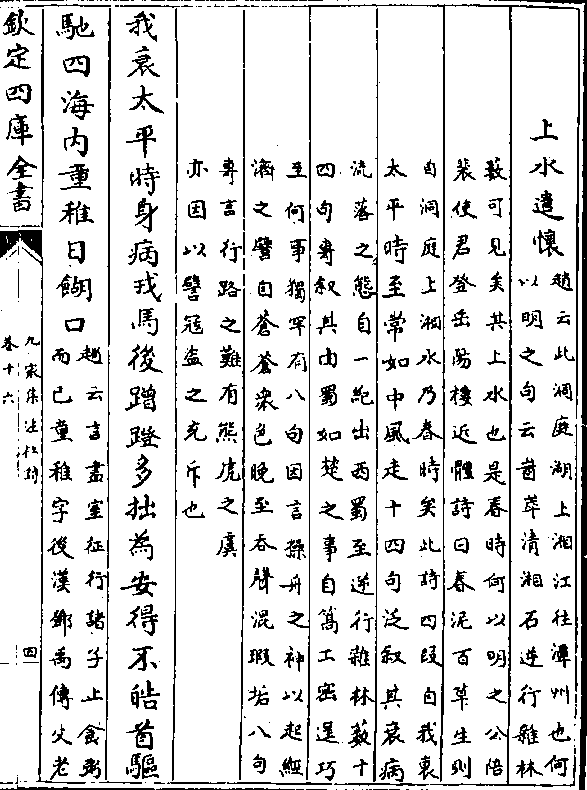 上水遣懷趙云此洞庭湖上湘江往潭州也何
以明之句云崷崒清湘石逆行雜林
藪可見矣其上水也是春時何以明之公陪
裴使君登岳陽樓近體詩曰春泥百草生則
自洞庭上湘水乃春時矣此詩四段自我衰
太平時至常如中風走十四句泛叙其衰病
流落之態自一紀出西蜀至逆行雜林藪十
四句專叙其由蜀如楚之事自篙工密逞巧
至何事獨罕有八句因言操舟之神以起經
濟之譬自蒼蒼衆色晚至吞聲混瑕垢八句
專言行路之難有熊虎之虞
亦因以譬冦盗之充斥也
我衰太平時身病戎馬後蹭蹬多拙為安得不皓首驅
馳四海内童稚日餬口趙云言盡室征行諸子上食粥
而已童稚字後漢鄧禹傳父老
欽定四庫全書
九家集注杜詩
卷十六
四